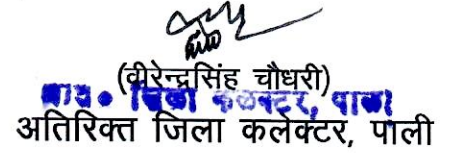 (वीरेन्द्रसिंह चौधरी)
अति० जिला कलेक्टर, पाली
अतिरिक्त जिला कलेक्टर, पाली